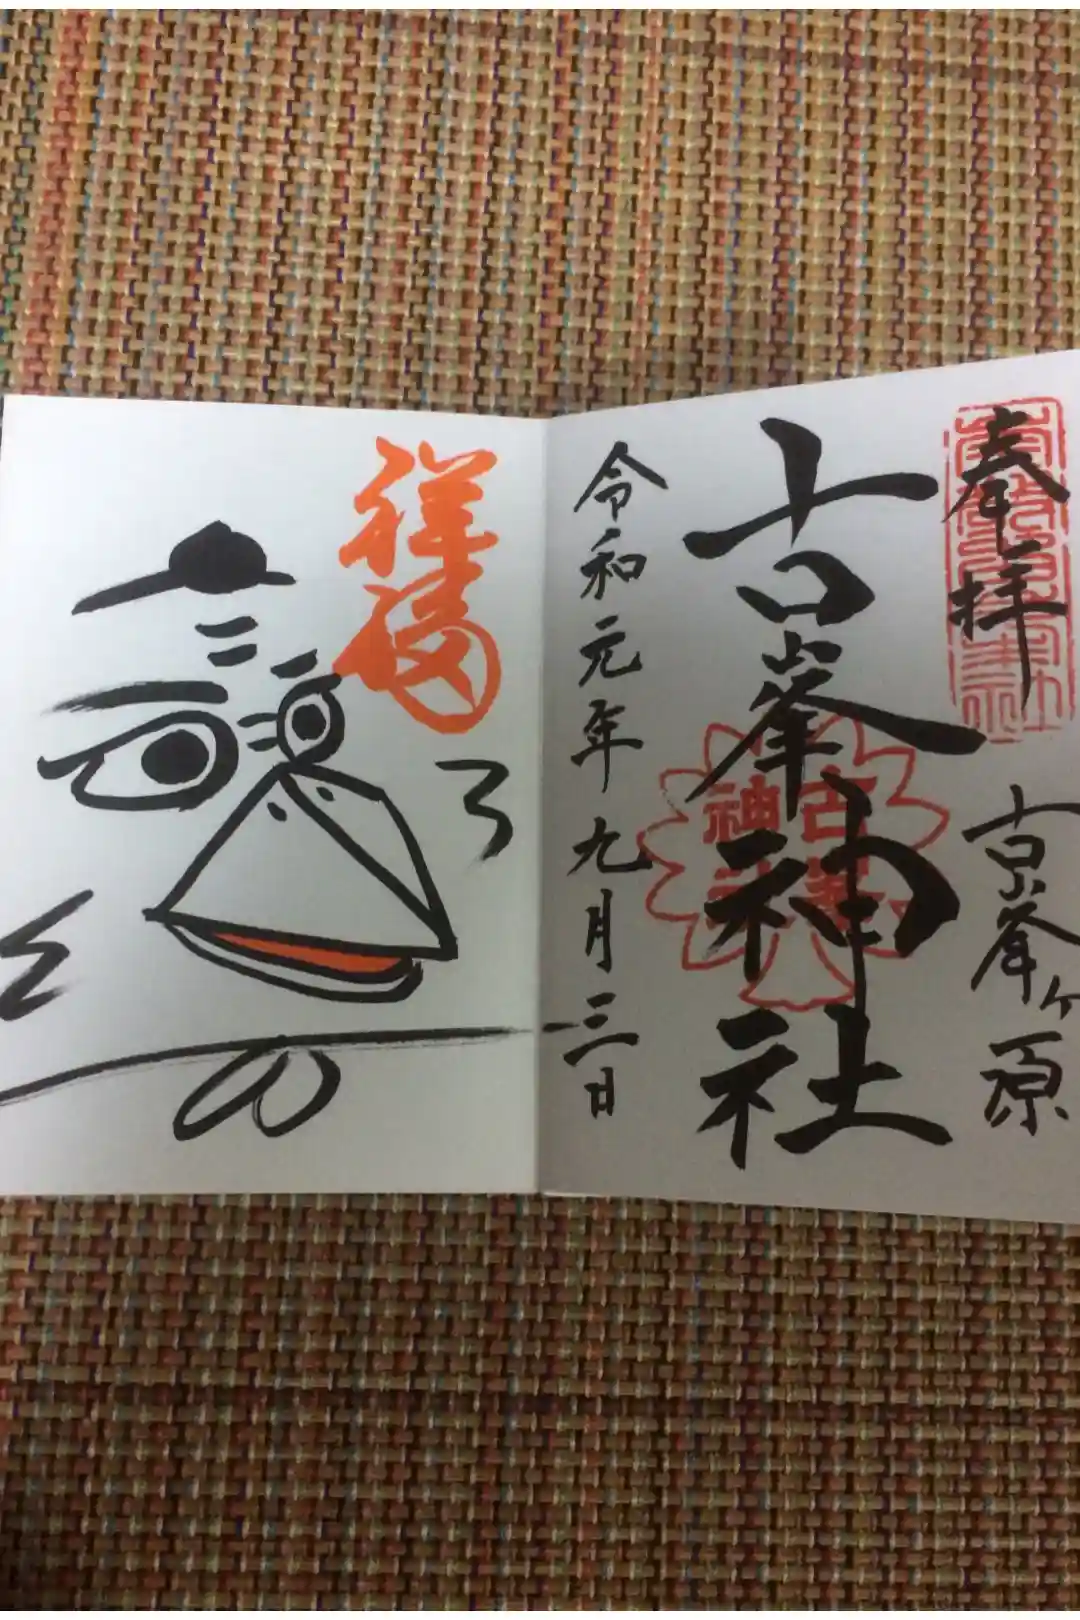 奉拝
古峯ヶ原
古峯神社
古峯神社
令和元年九月三日
祥福